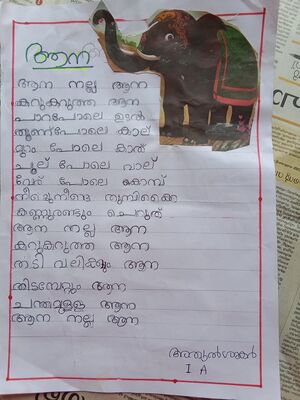 ആന
ആന നല്ല ആന
കറുകറുത്ത ആന
പാറപോലെ ഉടൽ
തൂണ്പോലെ കാല്
മുറം പോലെ കാത്
ചൂല് പോലെ വാല്
വേര് പോലെ കൊമ്പ്
നീണ്ടുനീണ്ട തുമ്പിക്കൈ
കണ്ണുരണ്ടും ചെറുത്
ആന നല്ല ആന
കറുകറുത്ത ആന
തടി വലിക്കും ആന
തിടമ്പേറ്റും ആന
ചന്തമുള്ള ആന
ആന നല്ല ആന
I A